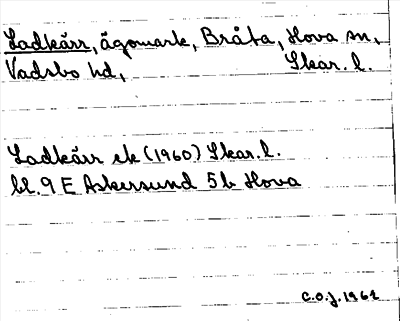 Ladkärr, ägomark, Bråta, Hova sn,
Vadsbo hd, Skar. l.
Ladkärr ek (1960) Skar. l.
bl. 9 E Askersund 5b Hova
C.O.J. 1962